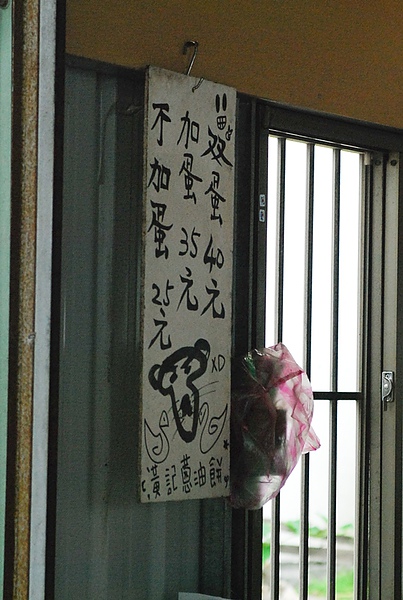 双蛋 40元
加蛋 35元
不加蛋 25元
XD
黃記蔥油餅